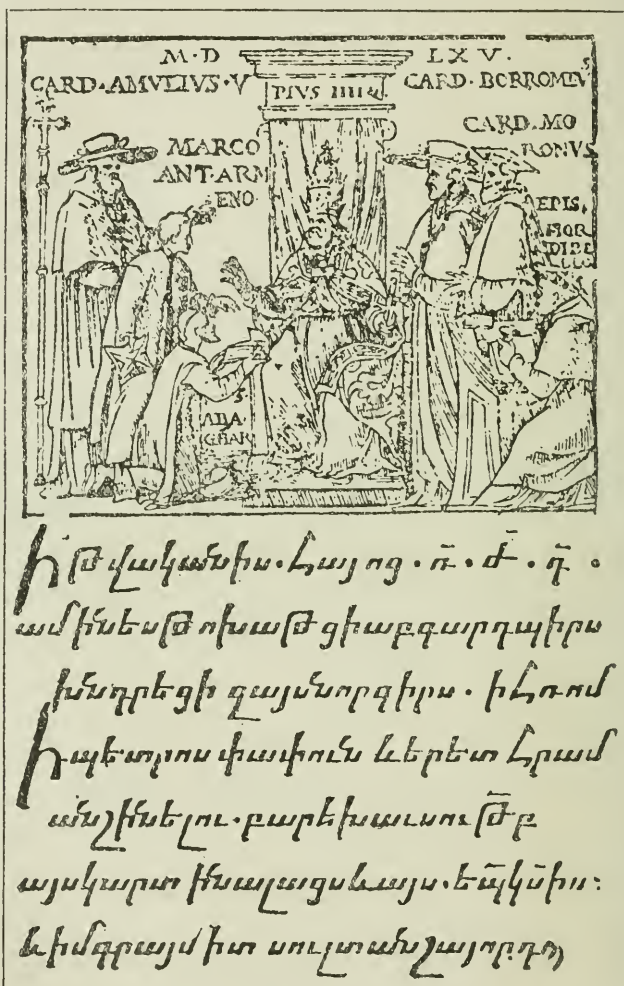 M·D LXV·
CARD·AMVLIVS·V PIVS IIII CARD·BORROMEVS
MARCO ANT·ARMENO·
CARD·MORONVS
EPIS·
ABAGHAR
Ի թվականիս·Հայոց·ռ̄·ժ̄·դ̄·
թոխաթցիաբգարդպիրս
խնդրեցի զայսնորգիրս·ի Հռոմ
Ի պետրոս փափուն և երետ Հրամ
անշինելու·բարեխաւսութ̄բ
այսկարտինալացսևայս·եպ̄կս̄իս։
և իմգրայմիտ սուլտանշայորդո